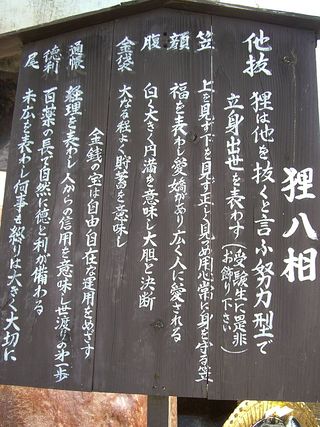 狸八相
他抜 狸は他を抜くと言ふ努力型で
立身出世を表わす(受験生に是非
お飾り下さい)
笠 上を見ず下を見ず正しく見つめ思常に身を守る笠
顔 福を表わし愛嬌があり広く人に愛される
腹 白く大きく円満を意味し大胆と決断
金袋 大なる程よく貯蓄を意味し
金銭の宝は自由自在な運用をめざす
通帳 経理を表わし人からの信用を意味し世渡りの第一歩
徳利 百薬の長で自然に徳と利が備わる
尾 末広を表わし何事も終りは大きく大切に